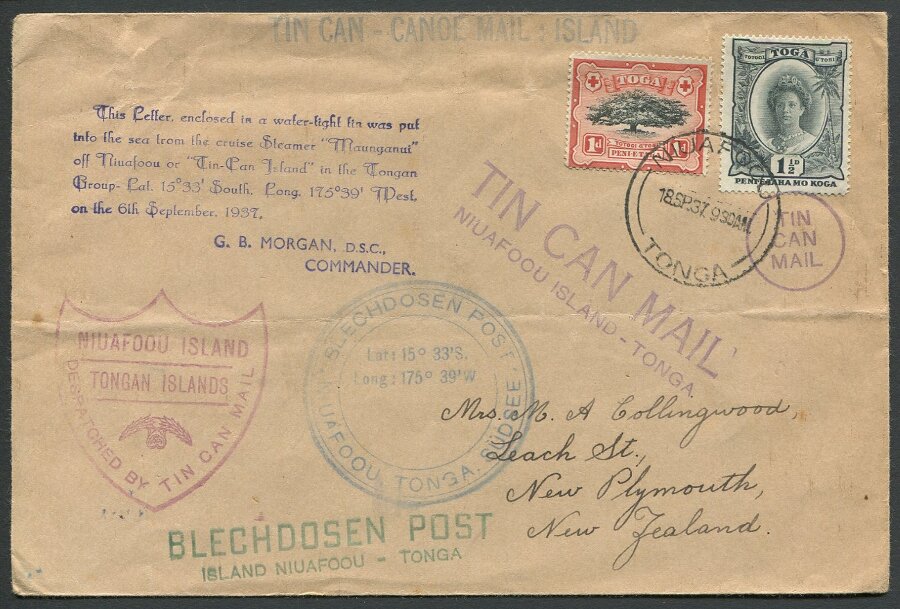 TIN CAN - CANOE MAIL : ISLAND
This Letter, enclosed in a water-tight tin was put
into the sea from the cruise Steamer "Maunganui"
off Niuafoou or "Tin-Can Island" in the Tongan
Group- Lat. 15°33' South, Long. 175°39' West,
on the 6th September, 1937.
G. B. MORGAN, D.S.C.,
COMMANDER.
TOGA
1d
TOTOGI O TOGA
PENI E TAHA
TOGA
TOTOGI
1½D
PENI E TAHA MO KOGA
NIUAFOOU
18.SP.37. 9 30AM.
TONGA
TIN
CAN
MAIL
TIN CAN MAIL
NIUAFOOU ISLAND - TONGA.
NIUAFOOU ISLAND
TONGAN ISLANDS
DESPATCHED BY TIN CAN MAIL
BLECHDOSEN POST
Lat: 15° 33'S.
Long: 175° 39'W
UAFOOU, TONGA, SUDSEE
Mrs. M. A Collingwood,
Leach St.,
New Plymouth,
New Zealand.
BLECHDOSEN POST
ISLAND NIUAFOOU - TONGA